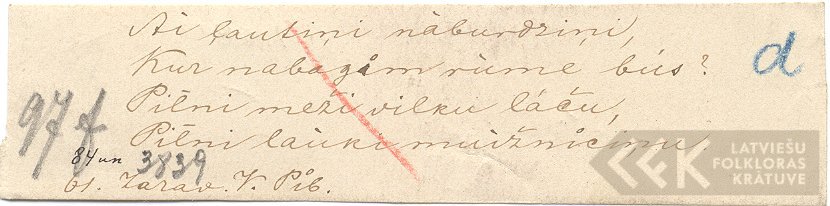 Ai ļautiņi nāburdziņi,
Kur nabagam rūme būs?
d
Pilni meži vilku lāču,
97 f
Pilni lauki muižnīciņu
84 un 3839
61. Zarav. V. Pib.
LATVIEŠU
FOLKLORAS
KRĀTUVE